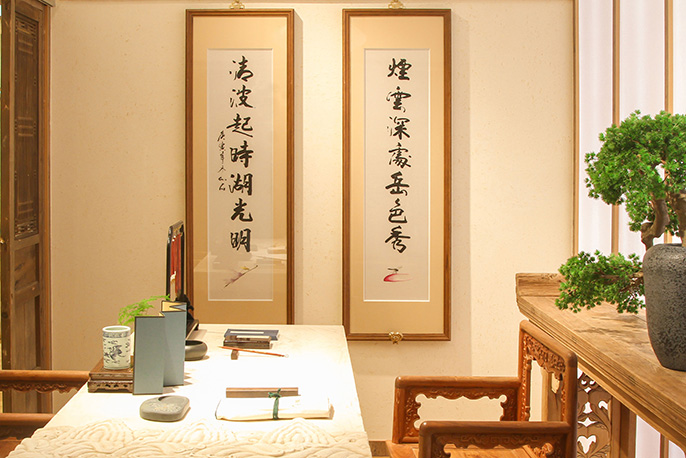 煙雲深處岳色秀
清波起時湖光明